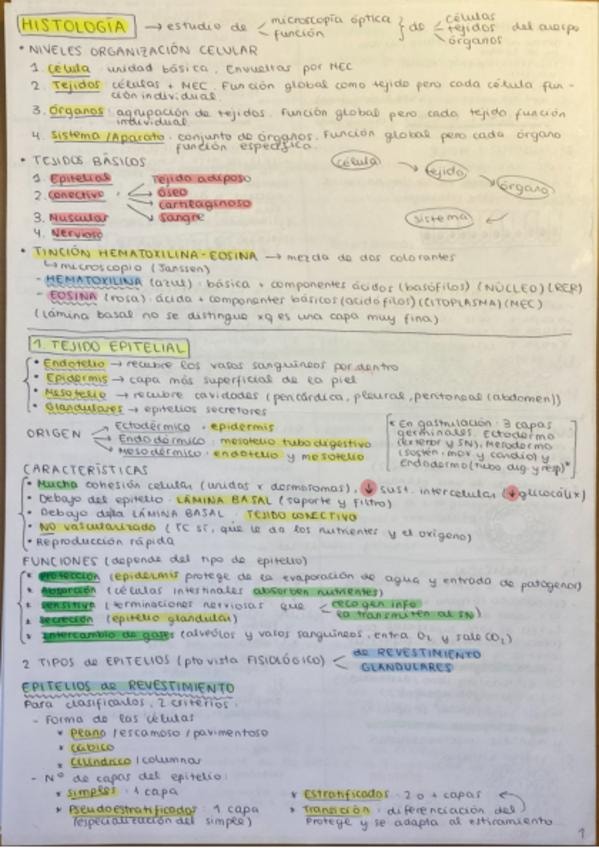 HISTOLOGÍA → estudio de < microscopía óptica función } de < células tejidos órganos del cuerpo
• NIVELES ORGANIZACIÓN CELULAR
1. Célula: unidad básica. Envueltas por MEC
2. Tejidos: células + MEC. Función global como tejido pero cada célula fun-
ción individual.
3. Órganos: agrupación de tejidos. Función global pero cada tejido función
individual.
4. Sistema/Aparato: conjunto de órganos. Función global pero cada órgano
función específica.
• TEJIDOS BÁSICOS
célula → tejido → órgano
sistema
1. Epitelial
2. Conectivo
Tejido adiposo
óseo
cartilaginoso
sangre
3. Muscular
4. Nervioso
• TINCIÓN HEMATOXILINA-EOSINA → mezcla de dos colorantes
↳ microscopio (Janssen)
- HEMATOXILINA (azul): básica + componentes ácidos (basófilos) (NÚCLEO) (RER)
- EOSINA (rosa): ácida + componentes básicos (acidófilos) (CITOPLASMA) (MEC)
(Lámina basal no se distingue xq es una capa muy fina)
1. TEJIDO EPITELIAL
• Endotelio → recubre los vasos sanguíneos por dentro
• Epidermis → capa más superficial de la piel
• Mesotelio → recubre cavidades (pericárdica, pleural, peritoneal (abdomen))
• Glandulares → epitelios secretores
ORIGEN
Ectodérmico: epidermis
Endodérmico: mesotelio tubo digestivo
Mesodérmico: endotelio y mesotelio
* En gastrulación: 3 capas
germinales. Ectodermo
(exterior y SN), Mesodermo
(sostén, mov y cardio) y
Endodermo (tubo dig. y resp)*
CARACTERÍSTICAS
• Mucha cohesión celular (unidas x desmosomas), ↓ sust. intercelular (↓ glucocálix)
• Debajo del epitelio: LÁMINA BASAL (soporte y filtro)
• Debajo de la LÁMINA BASAL: TEJIDO CONECTIVO
• NO vascularizado (TC sí, que le da los nutrientes y el oxígeno)
• Reproducción rápida
FUNCIONES (depende del tipo de epitelio)
* Protección (epidermis protege de la evaporación de agua y entrada de patógenos)
* Absorción (células intestinales absorben nutrientes)
* Sensitiva (terminaciones nerviosas que < recogen info
la transmiten al SN)
* Secreción (epitelio glandular)
* Intercambio de gases (alvéolos y vasos sanguíneos, entra O₂ y sale CO₂)
2 TIPOS de EPITELIOS (pto vista FISIOLÓGICO) < de REVESTIMIENTO
GLANDULARES
EPITELIOS de REVESTIMIENTO
Para clasificarlos, 2 criterios:
- Forma de las células
* Plano / escamoso / pavimentoso
* Cúbico
* Cilíndrico / columnas
- Nº de capas del epitelio:
* Simples: 1 capa
* Pseudoestratificados: 1 capa
(especialización del simple)
* Estratificados: 2 o + capas
* Transición: diferenciación del
Protege y se adapta al estiramiento
1